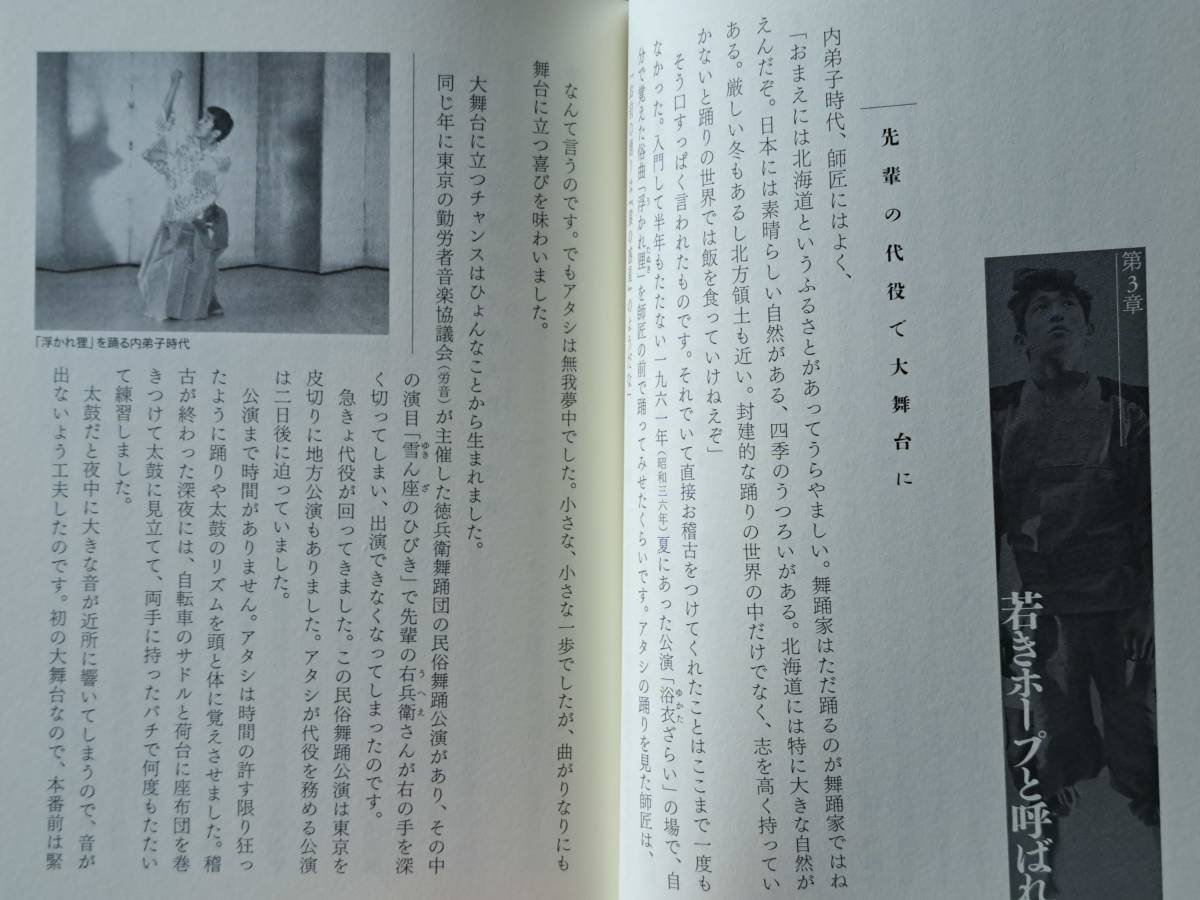 第3章
若きホープと呼ばれ
先輩の代役で大舞台に
内弟子時代、師匠にはよく、
「おまえには北海道というふるさとがあってうらやましい。舞踊家はただ踊るのが舞踊家ではね
えんだぞ。日本には素晴らしい自然がある、四季のうつろいがある。北海道には特に大きな自然が
ある。厳しい冬もあるし北方領土も近い。封建的な踊りの世界の中だけでなく、志を高く持ってい
かないと踊りの世界では飯を食っていけねえぞ」
そう口すっぱく言われたものです。それでいて直接お稽古をつけてくれたことはここまで一度も
なかった。入門して半年もたたない一九六一年（昭和三六年）夏にあった公演「浴衣ざらい」の場で、自
分で覚えた俗曲「浮かれ狸」を師匠の前で踊ってみせたくらいです。アタシの踊りを見た師匠は、
なんて言うのです。でもアタシは無我夢中でした。小さな、小さな一歩でしたが、曲がりなりにも
舞台に立つ喜びを味わいました。
大舞台に立つチャンスはひょんなことから生まれました。
同じ年に東京の勤労者音楽協議会（労音）が主催した徳兵衛舞踊団の民俗舞踊公演があり、その中
の演目「雪ん座のひびき」で先輩の右兵衛さんが右の手を深
く切ってしまい、出演できなくなってしまったのです。
急きょ代役が回ってきました。この民俗舞踊公演は東京を
皮切りに地方公演もありました。アタシが代役を務める公演
は二日後に迫っていました。
公演まで時間がありません。アタシは時間の許す限り狂っ
たように踊りや太鼓のリズムを頭と体に覚えさせました。稽
古が終わった深夜には、自転車のサドルと荷台に座布団を巻
きつけて太鼓に見立てて、両手に持ったバチで何度もたたい
て練習しました。
太鼓だと夜中に大きな音が近所に響いてしまうので、音が
出ないよう工夫したのです。初の大舞台なので、本番前は緊
「浮かれ狸」を踊る内弟子時代